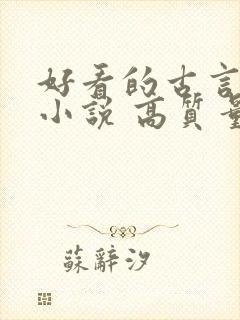 好看的古言
小說 高質量
蘇辭汐